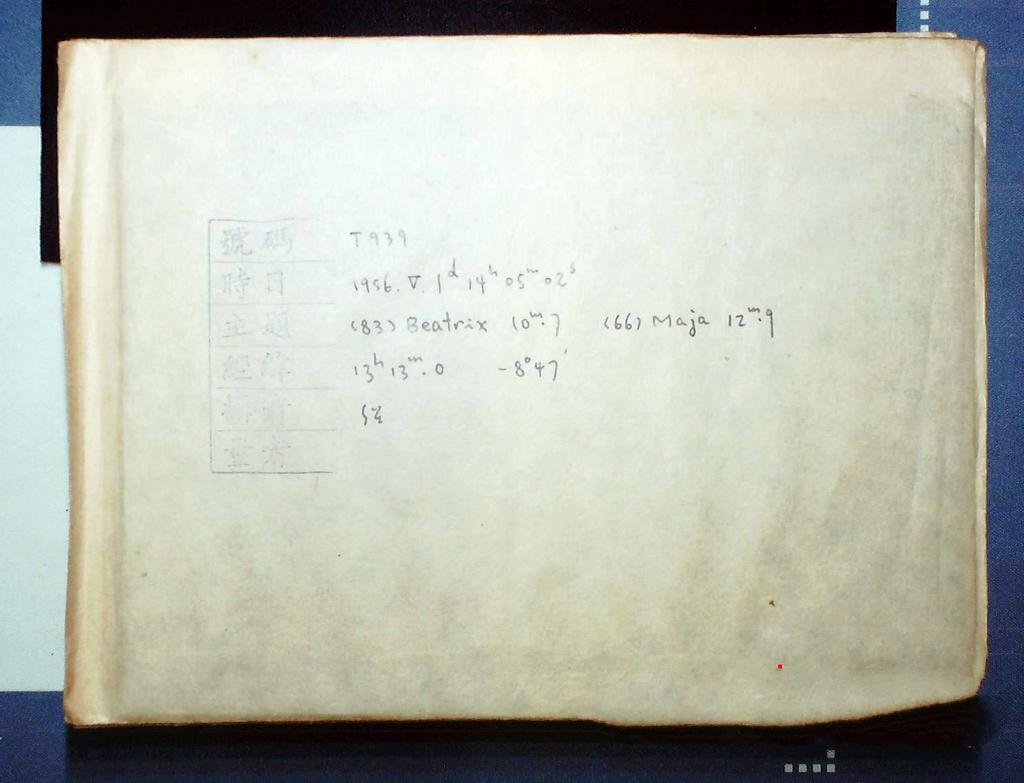 號碼 T939
時日 1956. V. 1ᵈ 14ʰ 05ᵐ 02ˢ
主題 (83) Beatrix 10ᵐ.7 (66) Maja 12ᵐ.9
經緯 13ʰ 13ᵐ.0 -8°47'